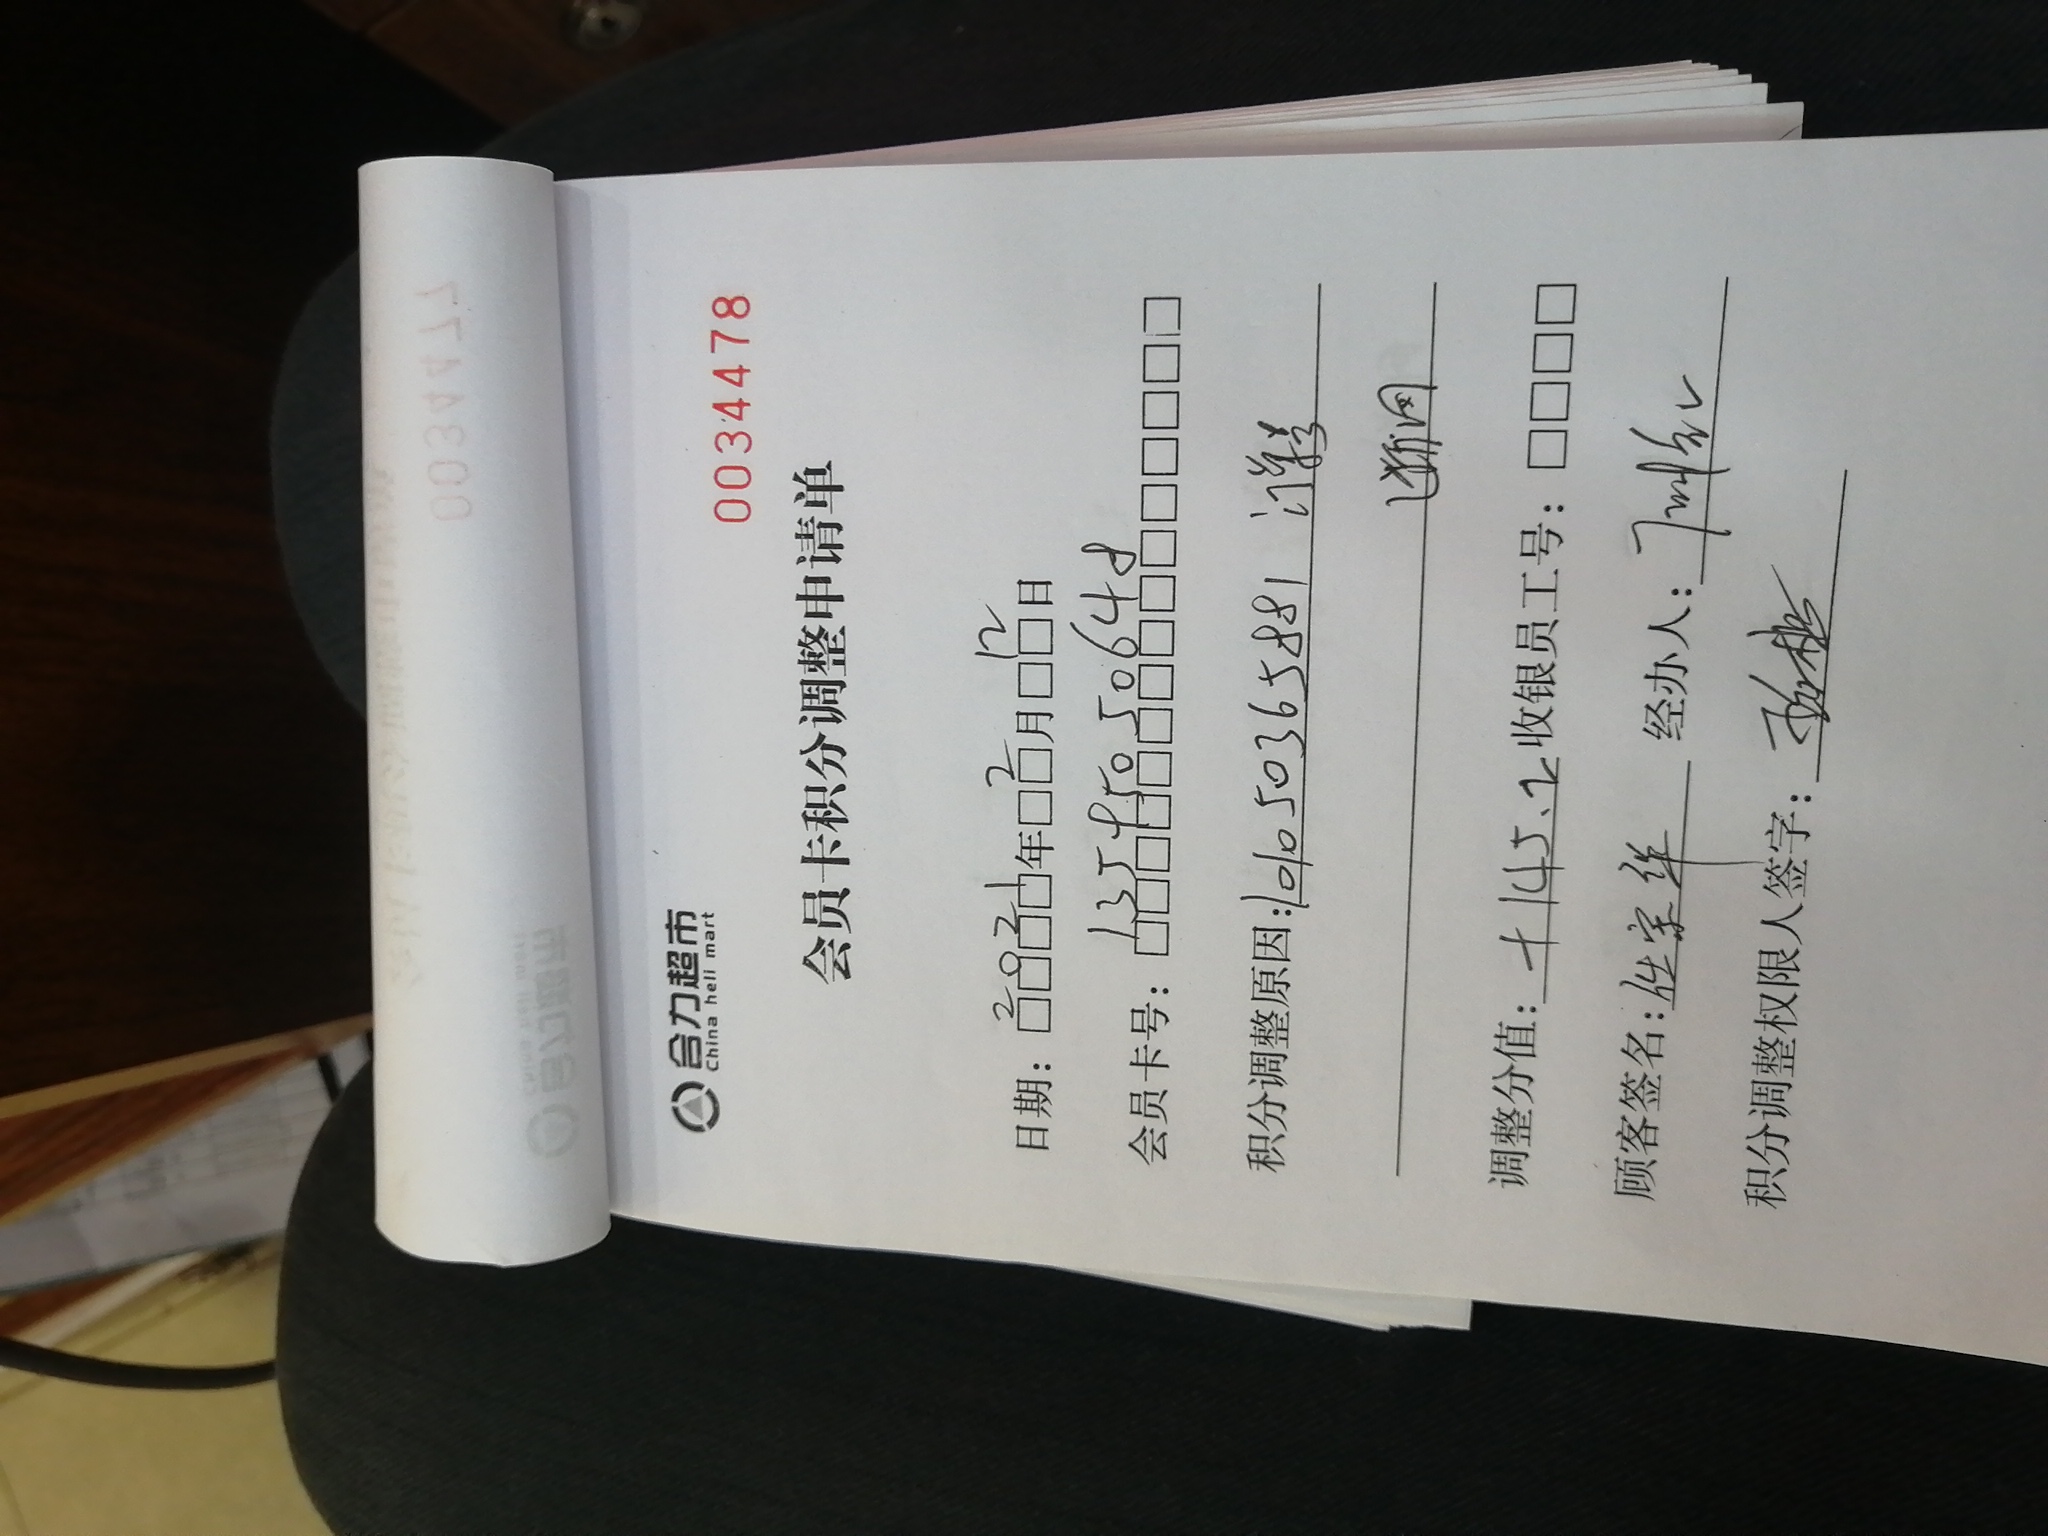 合力超市
China heli mart
0034478
会员卡积分调整申请单
日期：2021年2月12日
会员卡号：13595050648
积分调整原因：101050365881
调整分值：+145.2 收银员工号：
顾客签名：任字祥 经办人：
积分调整权限人签字：
0034477